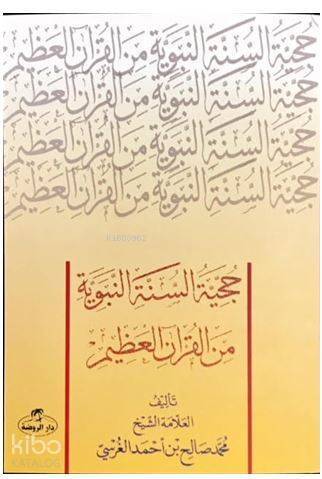 حُجِّيَّة السُّنَّة النَّبَوِيَّة مِنَ القُرآنِ العَظِيمِ
حُجِّيَّة السُّنَّة النَّبَوِيَّة مِنَ القُرآنِ العَظِيمِ
حُجِّيَّة السُّنَّة النَّبَوِيَّة مِنَ القُرآنِ العَظِيمِ
حُجِّيَّة السُّنَّة النَّبَوِيَّة مِنَ القُرآنِ العَظِيمِ
حُجِّيَّة السُّنَّة النَّبَوِيَّة
مِنَ القُرآنِ العَظِيمِ
تَأليف
العَلّامَة الشَّيْخ
مُحَمَّد صَالِح بْن أَحْمَد الغُرْسِيّ
دار الروضة
kibo
KATALOG